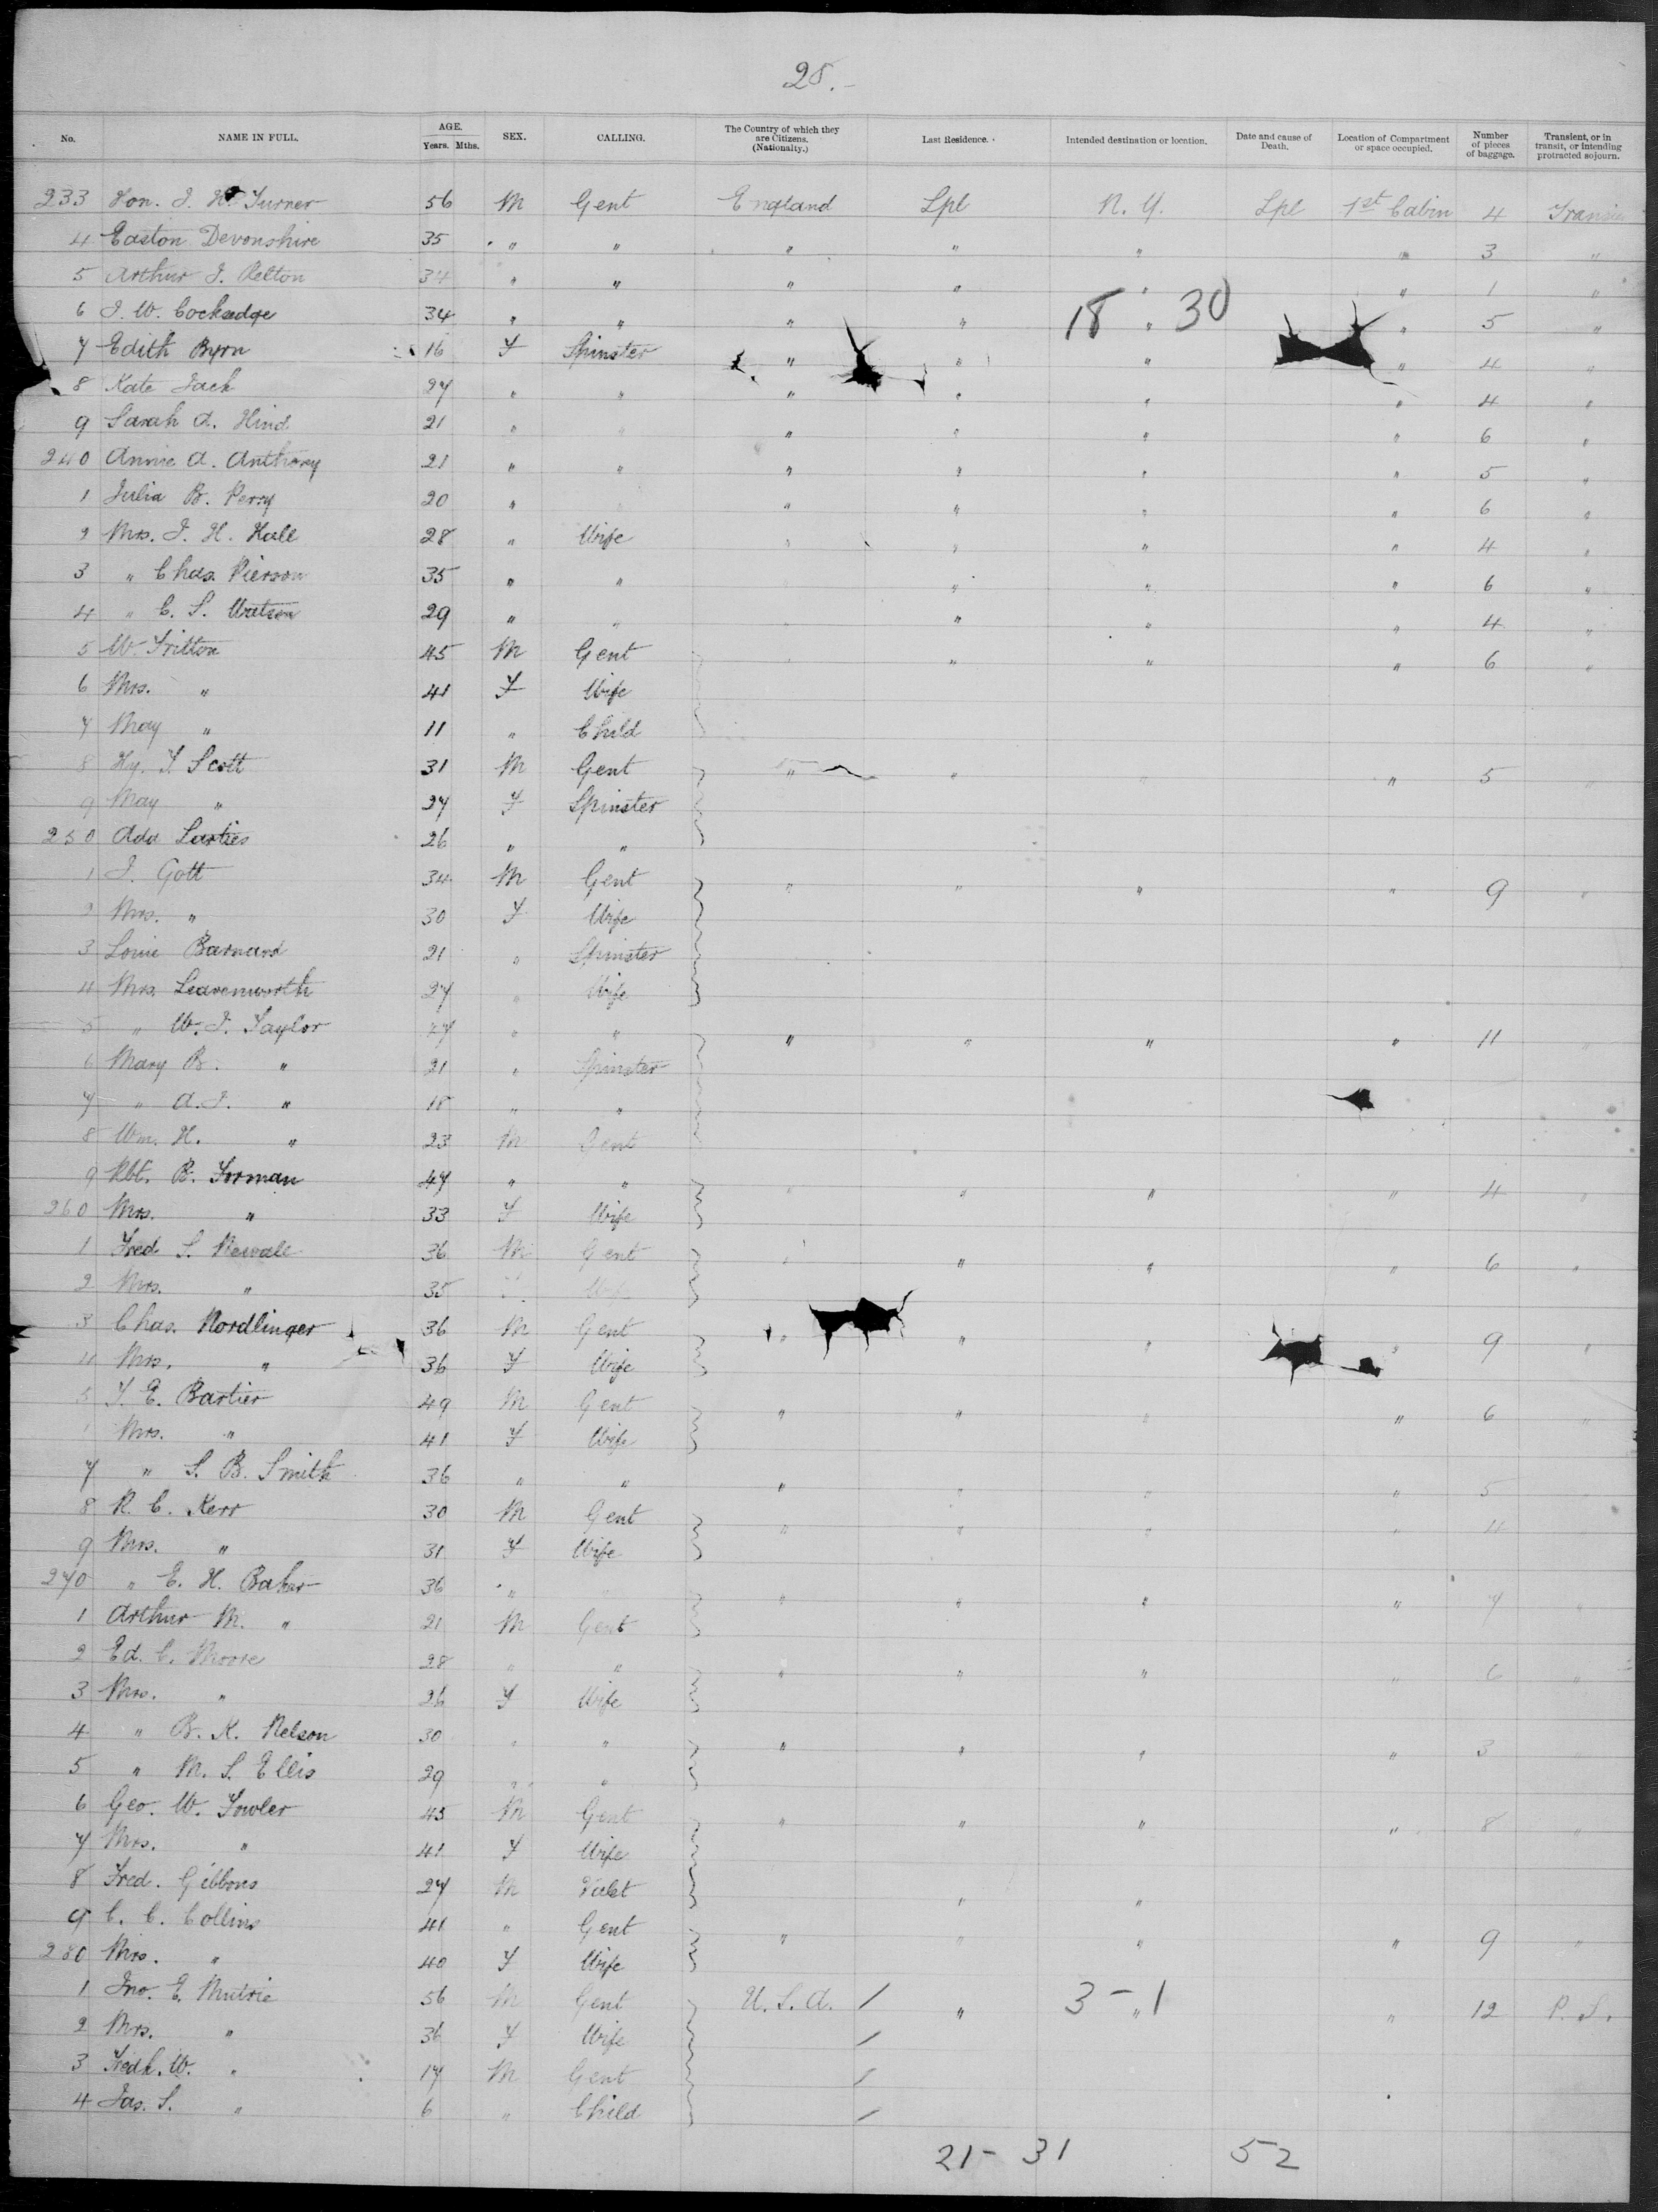 25.-
No. NAME IN FULL. AGE. Years. Mths. SEX. CALLING. The Country of which they are Citizens. (Nationalty.) Last Residence. Intended destination or location. Date and cause of Death. Location of Compartment or space occupied. Number of pieces of baggage. Transient, or in transit, or intending protracted sojourn.
233 Hon. J. H. Turner 56 M Gent England Lpl N. Y. Lpl 1st Cabin 4 Transi
4 Easton Devonshire 35 " " " " " " 3 "
5 Arthur J. Relton 34 " " " " " " 1 "
6 J. W. Cocksedge 34 " " " " 18 " 30 " 5 "
7 Edith Byrn 16 F Spinster " " " " 4 "
8 Kate Jack 27 " " " " " " 4 "
9 Sarah A. Hind 21 " " " " " " 6 "
240 Annie A. Anthony 21 " " " " " " 5 "
1 Julia B. Perry 20 " " " " " 6 "
2 Mrs. J. H. Hall 28 " Wife " " " " 4 "
3 " Chas. Pierson 35 " " " " " 6 "
4 " C. S. Watson 29 " " " " " " 4 "
5 W. Fritton 45 M Gent " " " " 6 "
6 Mrs. " 41 F Wife
7 May " 11 " Child
8 Hy. T. Scott 31 M Gent " " " " 5 "
9 May " 27 F Spinster
250 Ada 26 " "
1 J. Gott 34 M Gent " " " " 9 "
2 Mrs. " 30 F Wife
3 Louie Barnard 21 " Spinster
4 Mrs. Leavenworth 27 " Wife
5 " W. J. Taylor 47 " " " " " " 11 "
6 Mary B. " 21 " Spinster
7 " A. J. " 18 " "
8 Wm. H. " 23 M Gent
9 Rbt. B. Forman 47 " " " " " " 4 "
260 Mrs. " 33 F Wife
1 Fred S. Newall 36 M Gent " " " " 6 "
2 Mrs. " 35 " Wife
3 Chas. Nordlinger 36 M Gent " " " " 9 "
4 Mrs. " 36 F Wife
5 T. E. Bartier 49 M Gent " " " " 6 "
Mrs. " 41 F Wife
7 " S. B. Smith 36 " " " " " " 5
8 R. C. Kerr 30 M Gent " " " " 4
9 Mrs. " 31 F Wife
270 " E. H. Baker 36 " " " " " " 7 "
1 Arthur M. " 21 M Gent
2 Ed. C. Moore 28 " " " " " " 6 "
3 Mrs. " 26 F Wife
4 " B. K. Nelson 30 " " " " " " 3
5 " M. S. Ellis 29 " "
6 Geo. W. Fowler 45 M Gent " " " " 8 "
7 Mrs. " 41 F Wife
8 Fred. Gibbons 27 M Valet " "
9 C. C. Collins 41 " Gent " " " " 9 "
280 Mrs. " 40 F Wife
1 Jno. E. Mulrie 56 M Gent U. S. A. / " 3 - " 1 " 12 P. S.
2 Mrs. " 36 F Wife /
3 Fredk. W. " 17 M Gent /
4 Jas. S. " 6 " Child /
21 - 31 52